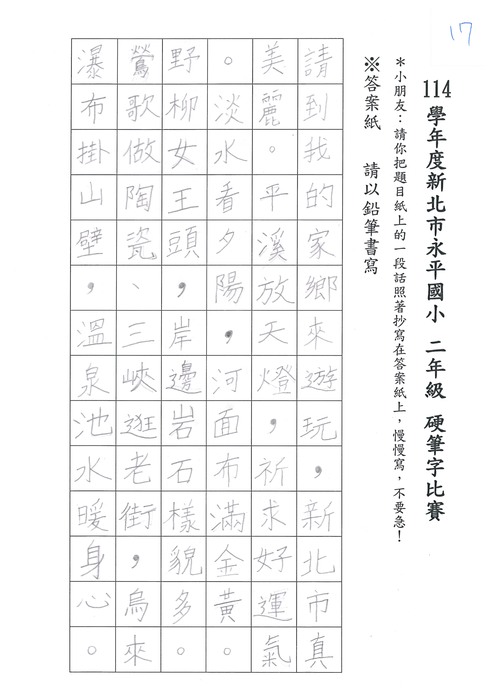 17
114學年度新北市永平國小 二年級 硬筆字比賽
＊小朋友：請你把題目紙上的一段話照著抄寫在答案紙上，慢慢寫，不要急！
※答案紙 請以鉛筆書寫
請到我的家鄉來遊玩，新北市真
美麗。平溪放天燈，祈求好運氣
。淡水看夕陽，河面布滿金黃。
野柳女王頭，岸邊岩石樣貌多。
鶯歌做陶瓷、三峽逛老街，烏來
瀑布掛山壁，溫泉池水暖身心。